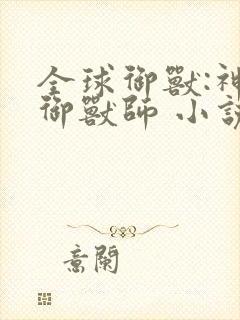 全球御獸:神
御獸師 小說
意闌